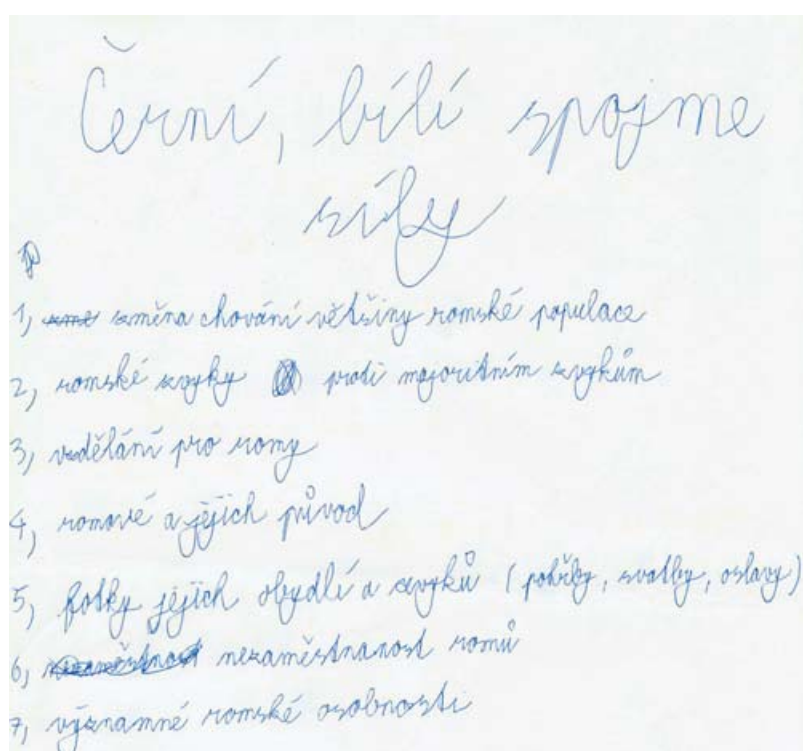 Černí, bílí spojme
síly
1, změna chování většiny romské populace
2, romské zvyky proti majoritním zvykům
3, vzdělání pro romy
4, romové a jejich původ
5, fotky jejich obydlí a zvyků (pohřby, svatby, oslavy)
6, nezaměstnanost romů
7, významné romské osobnosti